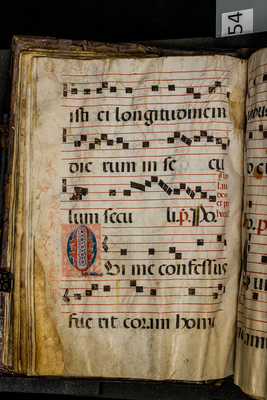 54
isti ei longitudinem
die rum in se cu
lum secu li. p̄. Po.
Qui me confessus
fue rit coram homi